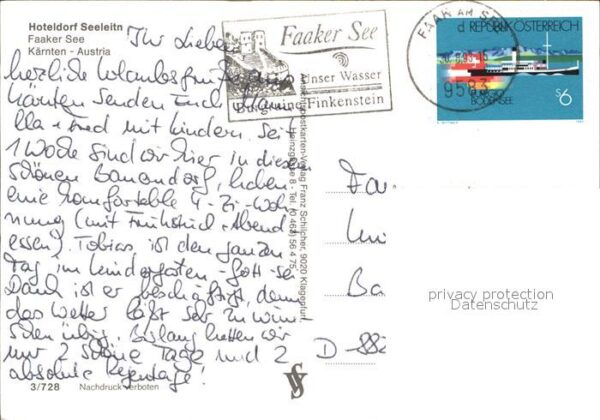 Hoteldorf Seeleitn
Faaker See
Kärnten - Austria
Ihr Lieben
herzliche Urlaubsgrüße aus
Kärnten senden Euch
lla + Fred mit Kindern. Seit
1 Woche sind wir hier in diesem
schönen Bauerndorf, haben
eine komfortable 4-Zi-Woh-
nung (mit Frühstück + Abend
essen). Tobias ist den ganzen
Tag im Kindergarten - Gott sei
Dank ist er beschäftigt, denn
das Wetter läßt sehr zu wün-
schen übrig. Bislang hatten wir
nur 2 schöne Tage und 2
absolute Regentage!
3/728 Nachdruck verboten
Faaker See
Unser Wasser
Burgruine Finkenstein
FAAK AM S
9583
REPUBLIK ÖSTERREICH
BODENSEE
S 6
Ansichtspostkarten-Verlag Franz Schilcher, 9020 Klagenfurt
Tel. (0 463) 56 4 75
Fa
Ba
D-882
privacy protection
Datenschutz